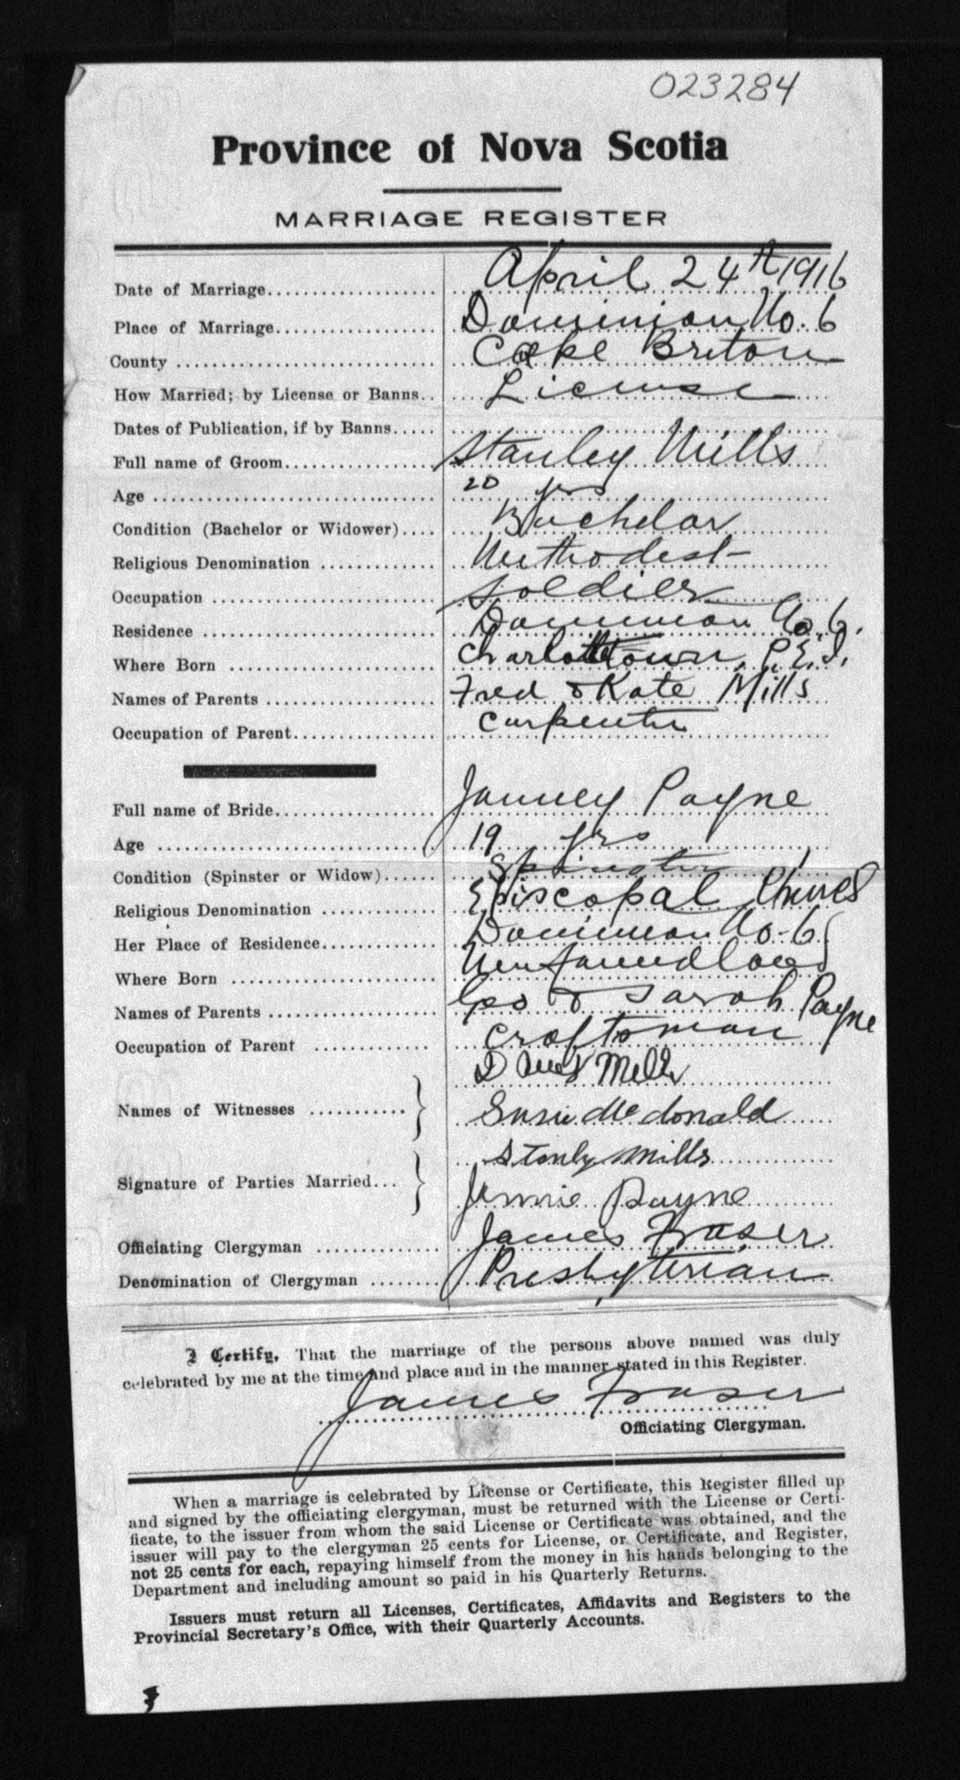 023284
Province of Nova Scotia
MARRIAGE REGISTER
Date of Marriage April 24th 1916
Place of Marriage Dominion No. 6
County Cape Briton
How Married; by License or Banns License
Dates of Publication, if by Banns
Full name of Groom Stanley Mills
Age 20 yrs
Condition (Bachelor or Widower) Bachelor
Religious Denomination Methodist
Occupation Soldier
Residence Dominion No. 6.
Where Born Charlottetown, P.E.I.
Names of Parents Fred & Kate Mills
Occupation of Parent Carpenter
Full name of Bride Janney Payne
Age 19 yrs
Condition (Spinster or Widow) Spinster
Religious Denomination Episcopal Church
Her Place of Residence Dominion No-6
Where Born Newfoundland
Names of Parents Geo & Sarah Payne
Occupation of Parent Craftsman
Mills
Names of Witnesses
Susie McDonald
Stanly Mills
Signature of Parties Married
Jennie Payne
Officiating Clergyman James Fraser
Denomination of Clergyman Presbyterian
I Certify, That the marriage of the persons above named was duly
celebrated by me at the time and place and in the manner stated in this Register.
James Fraser
Officiating Clergyman.
When a marriage is celebrated by License or Certificate, this Register filled up
and signed by the officiating clergyman, must be returned with the License or Certi-
ficate, to the issuer from whom the said License or Certificate was obtained, and the
issuer will pay to the clergyman 25 cents for License, or Certificate, and Register,
not 25 cents for each, repaying himself from the money in his hands belonging to the
Department and including amount so paid in his Quarterly Returns.
Issuers must return all Licenses, Certificates, Affidavits and Registers to the
Provincial Secretary's Office, with their Quarterly Accounts.